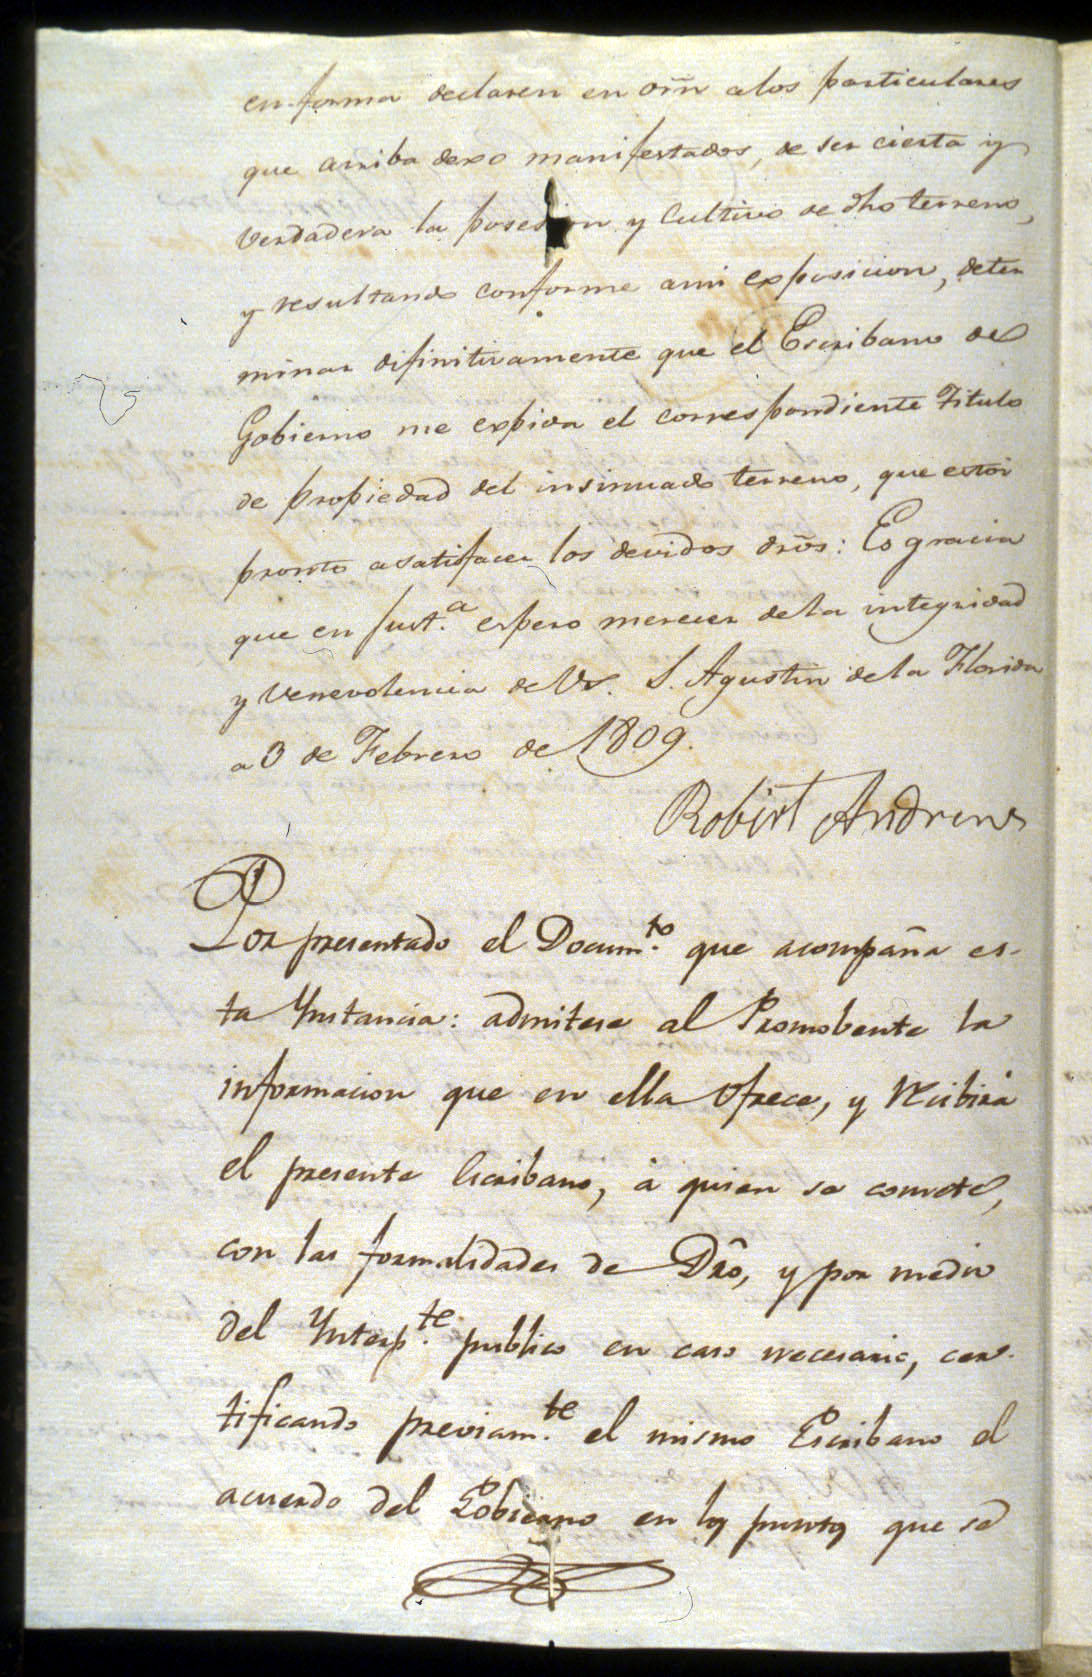 en forma declaren en orñ a los particulares
que arriba dexo manifestados, de ser cierta y
verdadera la posesion y Cultivo de dho terreno,
y resultando conforme a mi exposicion, deter
minar difinitivamente que el Escribano de
Gobierno me expida el correspondiente Titulo
de propiedad del insinuado terreno, que estoi
pronto a satisfacer los devidos drõs: Es gracia
que en Just.a espero merecer de la integridad
y Venevolencia de VS. S. Agustin de la Florida
a 3 de Febrero de 1809.
Robert Andrews
Por presentado el Docum.to que acompaña es-
ta Ynstancia: admitese al Promobente la
informacion que en ella Ofrece, y recibirá
el presente Escribano, á quien se comete,
con las formalidades de Dro, y por medio
del Ynterp.te publico en caso necesario, cer-
tificando previam.te el mismo Escribano el
acuerdo del Gobierno en los puntos que se